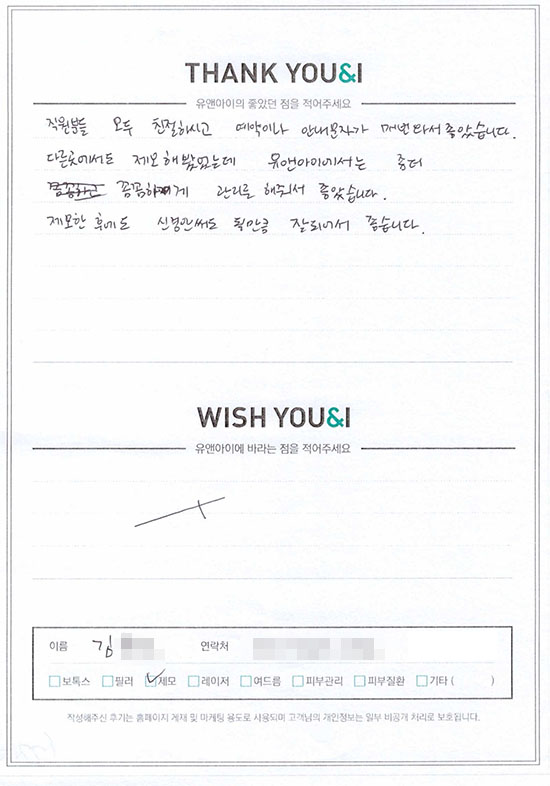 THANK YOU&I
유앤아이의 좋았던 점을 적어주세요
직원분들 모두 친절하시고 예약이나 안내문자가 매번 와서 좋았습니다.
다른곳에서도 제모해봤었는데 유앤아이에서는 좀더
꼼꼼하게 관리를 해줘서 좋았습니다.
제모한 후에도 신경안써도 될만큼 잘되어서 좋습니다.
WISH YOU&I
유앤아이에 바라는 점을 적어주세요
이름 김 연락처
보톡스 필러 제모 레이저 여드름 피부관리 피부질환 기타 ( )
작성해주신 후기는 홈페이지 게재 및 마케팅 용도로 사용되며 고객님의 개인정보는 일부 비공개 처리로 보호됩니다.